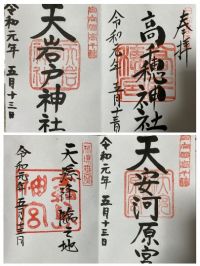 天岩戸神社
令和元年 五月十三日
奉拝
高千穂神社
令和元年 五月十三日
天孫降臨之地
令和元年五月十三日
天安河原宮
令和元年 五月十三日